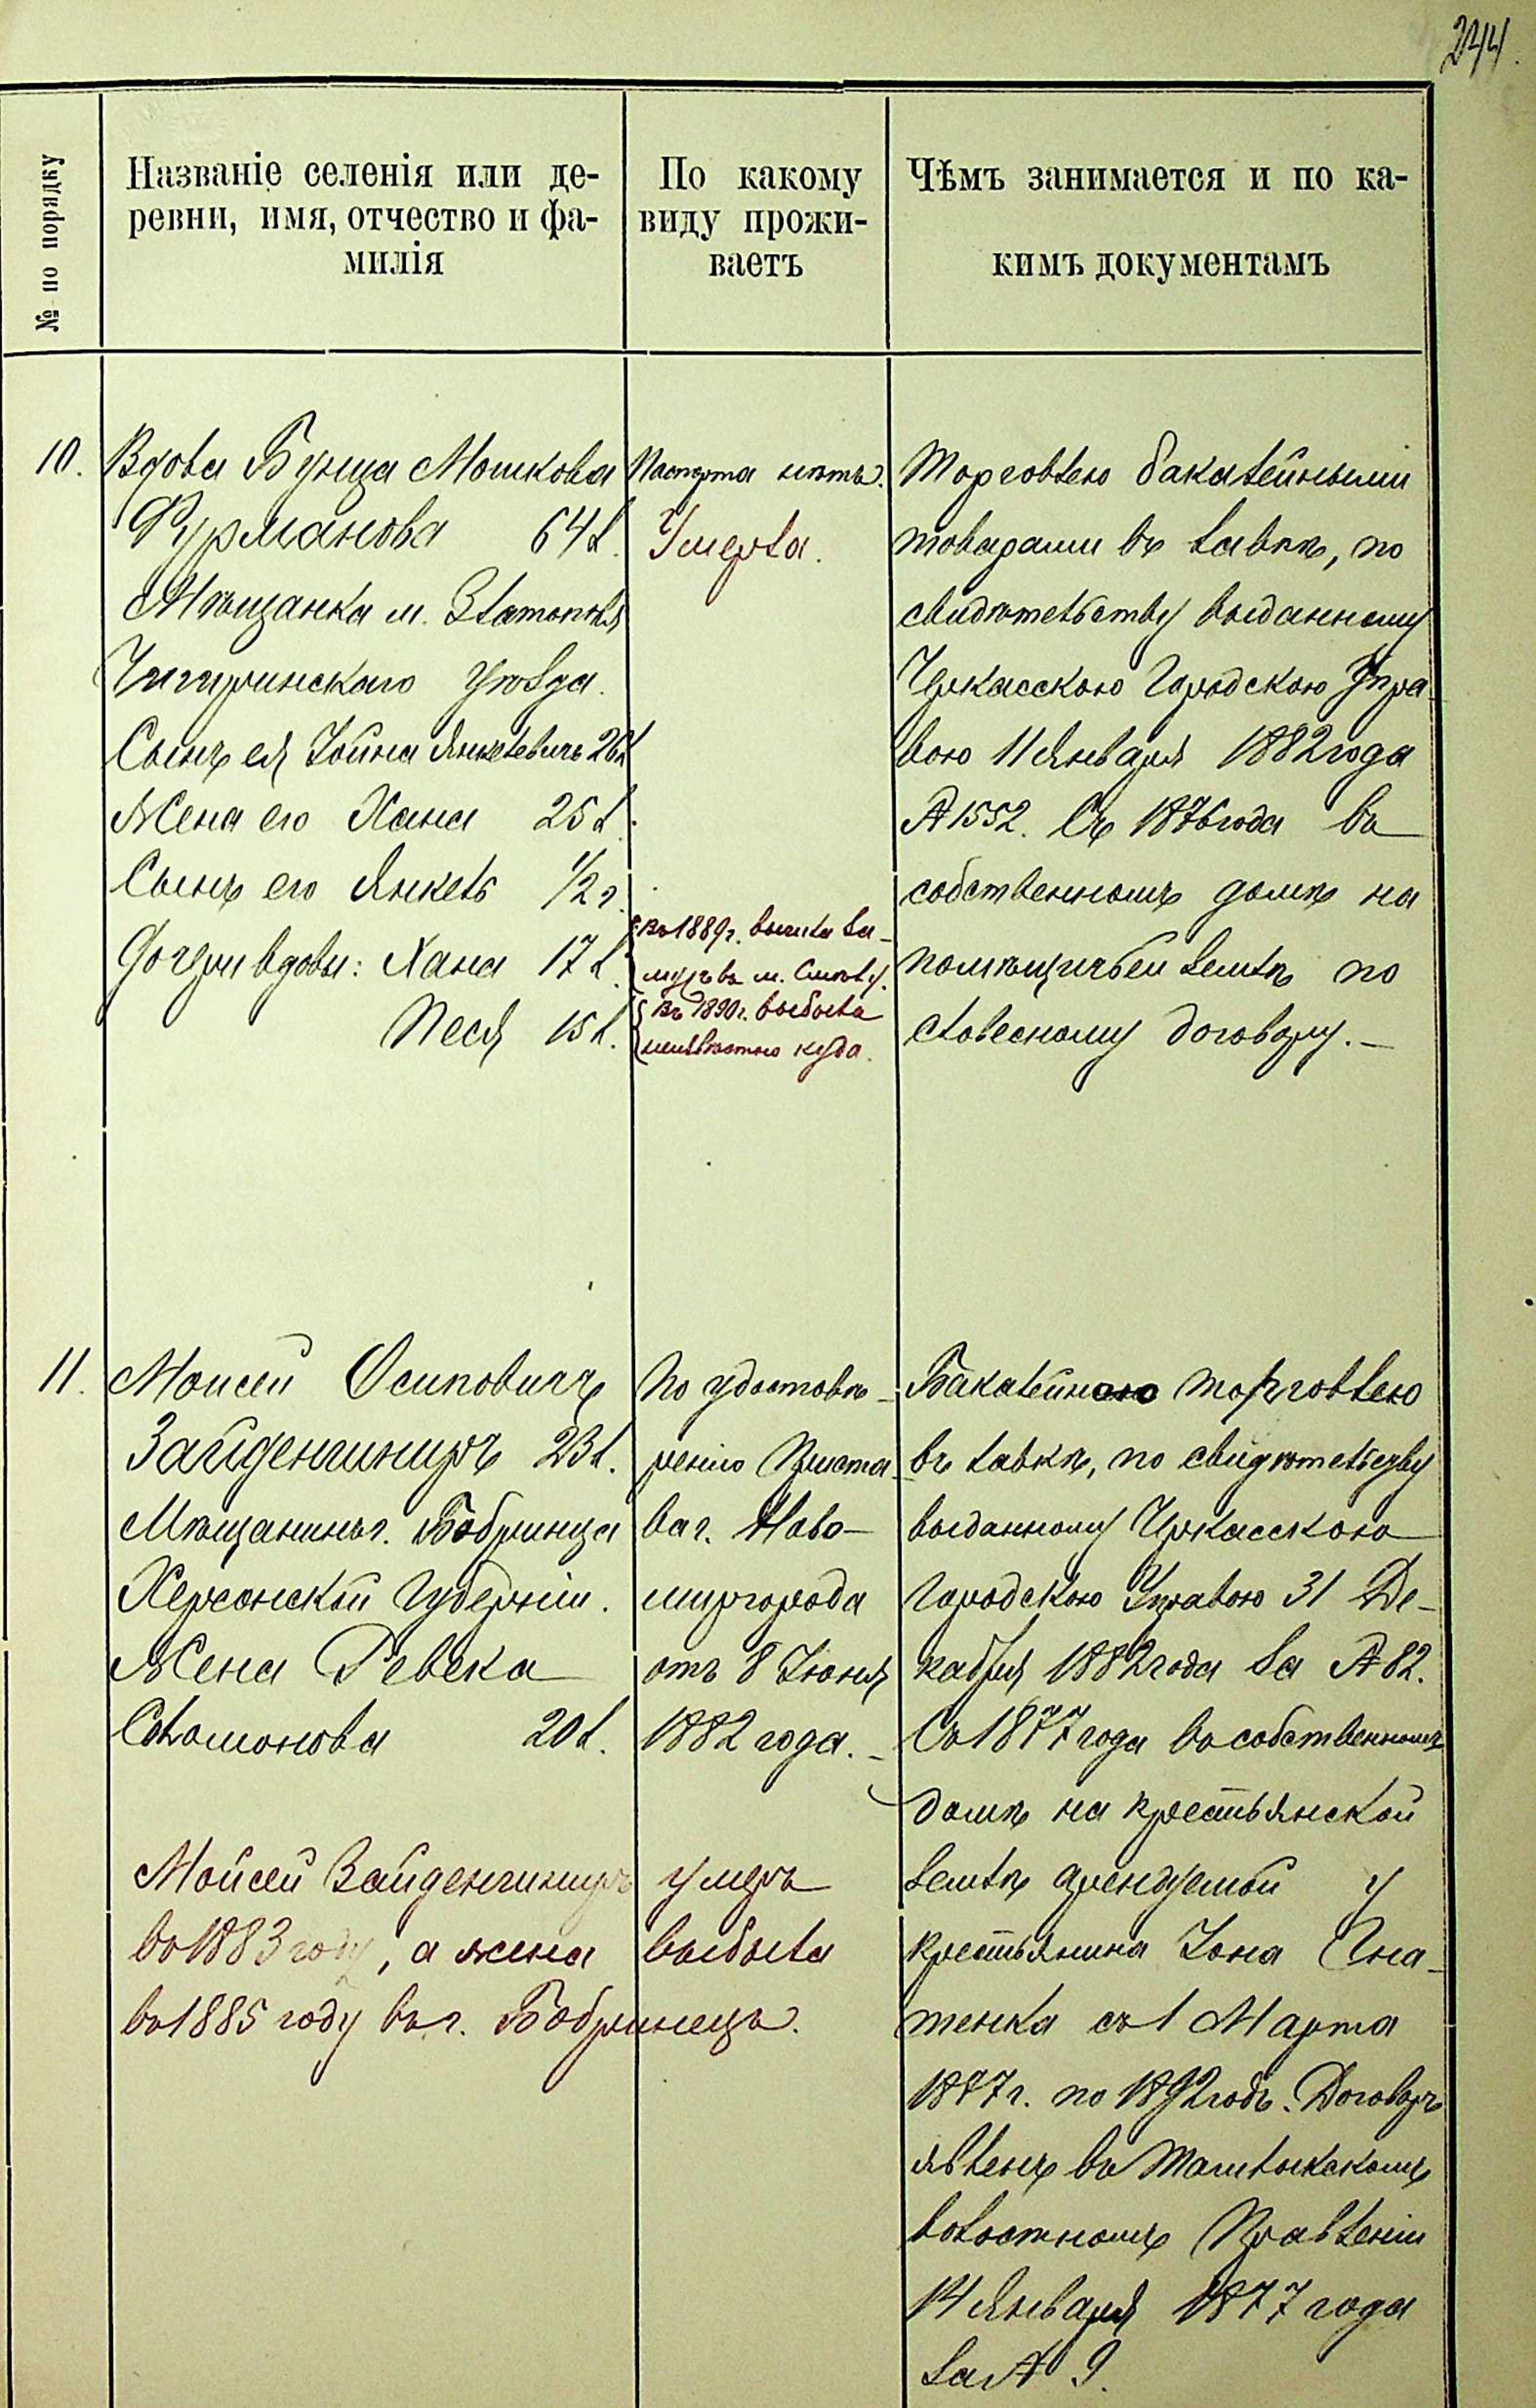 244.
№ по порядку
Названіе селенія или де-
ревни, имя, отчество и фа-
милія
По какому
виду прожи-
ваетъ
Чѣмъ занимается и по ка-
кимъ документамъ
10.
Вдова Бунца Мошкова
Фурманова 64 л.
Мѣщанка м. Златополя
Чигиринскаго уѣзда.
Сынъ ея Іойна Янкелевичъ 26 л
Жена его Хана 25 л.
Сынъ его Янкель 1/2 г.
Дочери вдовы: Хана 17 л.
Песя 15 л.
Паспорта нѣтъ.
Умерла.
Въ 1889 г. вышла за-
мужъ въ м. Смѣлу.
Въ 1890 г. выбыла
неизвѣстно куда.
Торговлею бакалейными
товарами въ лавкѣ, по
свидѣтельству выданному
Черкасскою Городскою Упра-
вою 11 Января 1882 года
№ 1552. Съ 1876 года въ
собственномъ домѣ на
помѣщичьей землѣ по
словесному договору.—
11.
Моисей Осиповичъ
Зайденшниръ 23 л.
Мѣщанинъ г. Бобринца
Херсонской Губерніи.
Жена Ревека
Соломонова 20 л.
По удостовѣ-
ренію Приста-
ва г. Ново-
миргорода
отъ 8 Іюня
1882 года.—
Бакалейною торговлею
въ лавкѣ, по свидѣтельству
выданному Черкасскою
Городскою Управою 31 Де-
кабря 1882 года за № 82.
Съ 1877 года въ собственномъ
домѣ на крестьянской
землѣ арендуемой у
крестьянина Іона Гна-
тенка съ 1 Марта
1877 г. по 1892 годъ. Договоръ
явленъ въ Ташлыкскомъ
волостномъ Правленіи
14 Января 1877 года
за № 9.
Мойсей Зайденшниръ умеръ
въ 1883 году, а жена выбыла
въ 1885 году въ г. Бобринецъ.